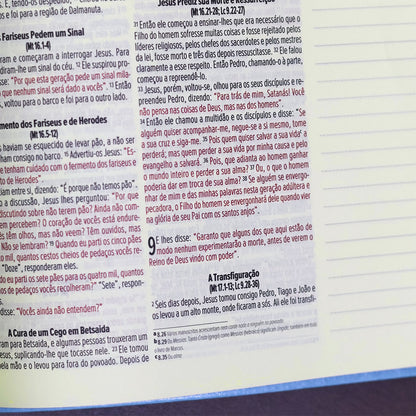 s. E, tendo-os despedido,
e foi para a região de Dalmanuta.
s Fariseus Pedem um Sinal
(Mt 16.1-4)
e começaram a interrogar Jesus. Para
diram-lhe um sinal do céu. 12 Ele suspirou
sse: "Por que esta geração pede um sinal mila-
que nenhum sinal será dado a vocês". 13 Então
voltou para o barco e foi para o outro lado.
mento dos Fariseus e de Herodes
(Mt 16.5-12)
haviam se esquecido de levar pão, a não ser
nham consigo no barco. 15 Advertiu-os Jesus: "Es-
e tenham cuidado com o fermento dos fariseus e
to de Herodes".
am entre si, dizendo: "É porque não temos pão".
a discussão, Jesus lhes perguntou: "Por que
discutindo sobre não terem pão? Ainda não com-
em percebem? O coração de vocês está endure-
ês têm olhos, mas não veem? Têm ouvidos, mas
Não se lembram? 19 Quando eu parti os cinco pães
mil, quantos cestos cheios de pedaços vocês re-
"Doze", responderam eles.
do eu parti os sete pães para os quatro mil, quantos
os de pedaços vocês recolheram?" "Sete", respon-
disse: "Vocês ainda não entendem?"
A Cura de um Cego em Betsaida
ram para Betsaida, e algumas pessoas trouxeram um
esus, suplicando-lhe que tocasse nele. 23 Ele tomou
pela mão e o levou para fora do povoado. Depois de
Jesus Prediz sua Morte e Ressurreição
(Mt 16.21-28; Lc 9.22-27)
31 Então ele começou a ensinar-lhes que era necessário que o
Filho do homem sofresse muitas coisas e fosse rejeitado pelos
líderes religiosos, pelos chefes dos sacerdotes e pelos mestres
da lei, fosse morto e três dias depois ressuscitasse. 32 Ele falou
claramente a esse respeito. Então Pedro, chamando-o à parte,
começou a repreendê-lo.
33 Jesus, porém, voltou-se, olhou para os seus discípulos e re-
preendeu Pedro, dizendo: "Para trás de mim, Satanás! Você
não pensa nas coisas de Deus, mas nas dos homens".
34 Então ele chamou a multidão e os discípulos e disse: "Se
alguém quiser acompanhar-me, negue-se a si mesmo, tome
a sua cruz e siga-me. 35 Pois quem quiser salvar a sua vida c a
perderá; mas quem perder a sua vida por minha causa e pelo
evangelho a salvará. 36 Pois, que adianta ao homem ganhar
o mundo inteiro e perder a sua alma? 37 Ou, o que o homem
poderia dar em troca de sua alma? 38 Se alguém se envergo-
nhar de mim e das minhas palavras nesta geração adúltera e
pecadora, o Filho do homem se envergonhará dele quando vier
na glória de seu Pai com os santos anjos".
9 E lhes disse: "Garanto que alguns dos que aqui estão de
modo nenhum experimentarão a morte, antes de verem o
Reino de Deus vindo com poder".
A Transfiguração
(Mt 17.1-13; Lc 9.28-36)
2 Seis dias depois, Jesus tomou consigo Pedro, Tiago e João e
os levou a um alto monte, onde ficaram a sós. Ali ele foi transfi-
a 8.26 Vários manuscritos acrescentam nem conte nada a ninguém no povoado.
b 8.29 Ou Messias. Tanto Cristo (grego) como Messias (hebraico) significam Ungido; também em
livro de Marcos.
c 8.35 Ou alma